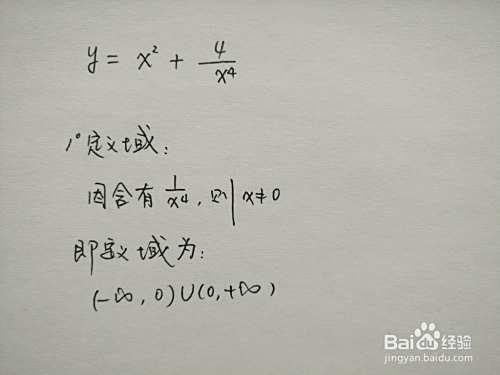 y = x² + 4/x⁴
1° 定义域：
因含有 1/x⁴，则 x≠0
即定义域为：
(-∞，0)∪(0,+∞)
Baidu经验
jingyan.baidu.com